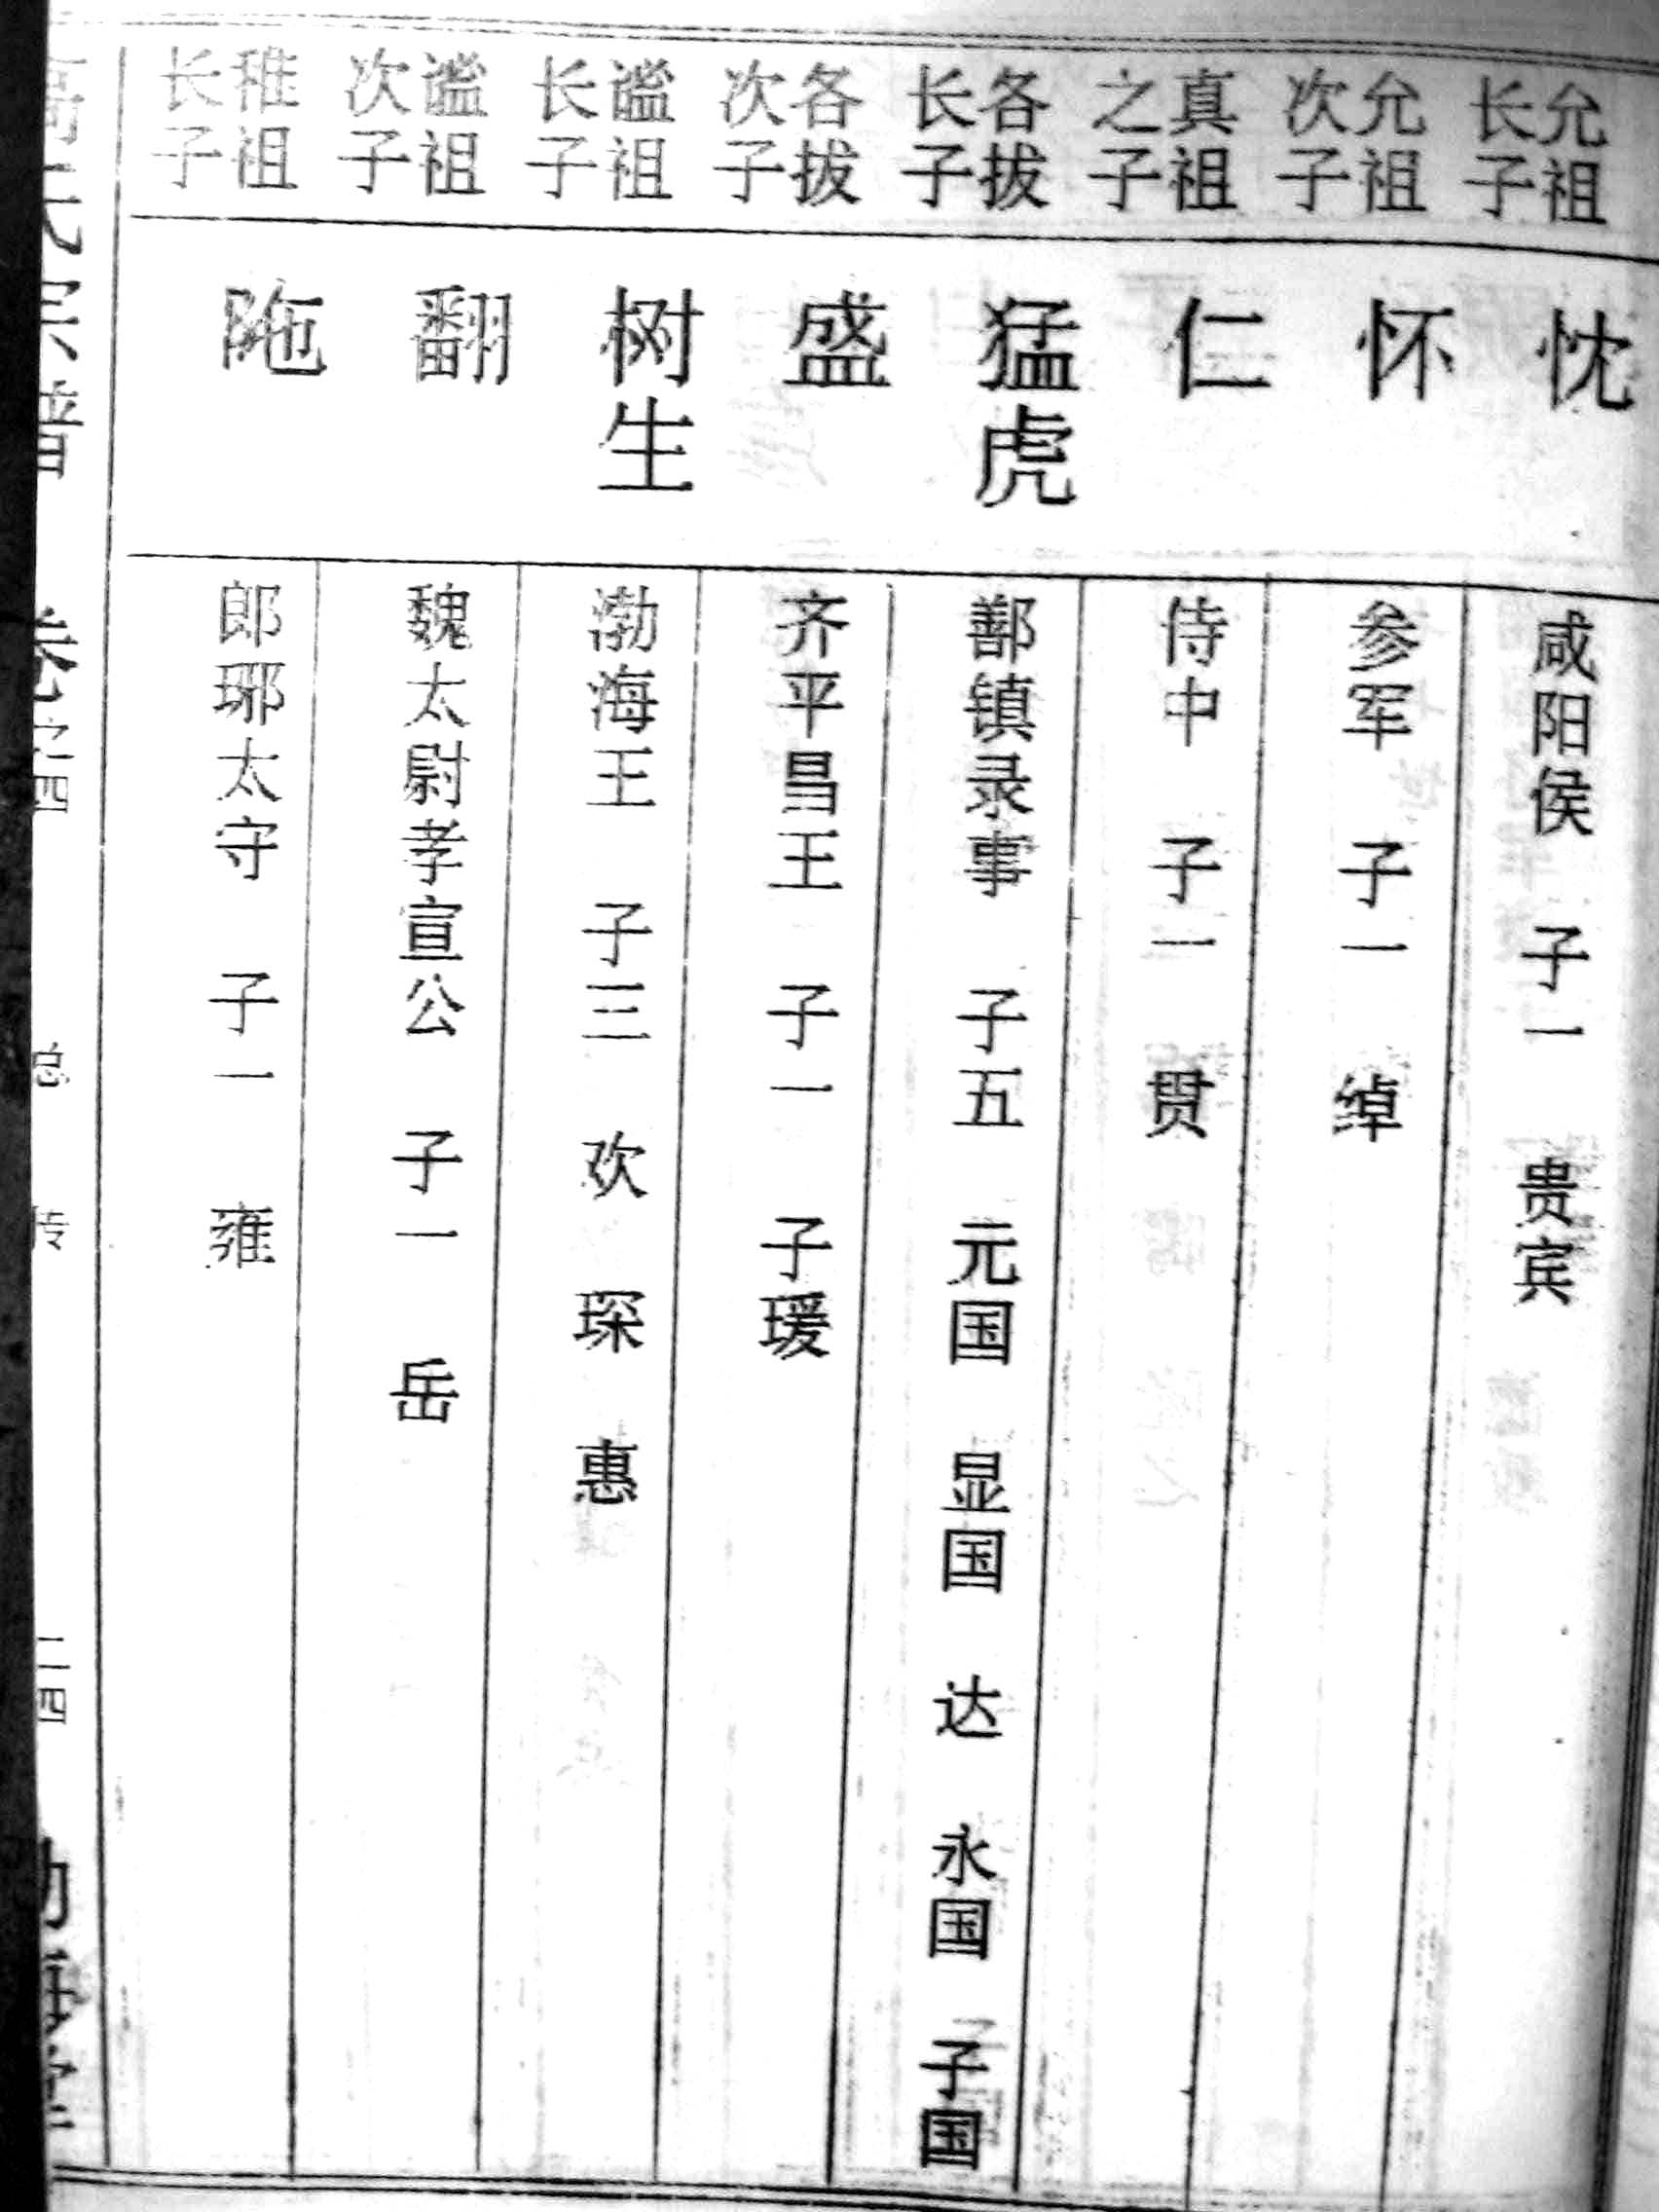 允祖长子
忱
咸阳侯 子一 贵宾
允祖次子
怀
参军 子一 绰
真祖之子
仁
侍中 子一 贯
各拔长子
猛虎
鄯镇录事 子五 元国 显国 达 永国 子国
各拔次子
盛
齐平昌王 子一 子瑗
谧祖长子
树生
渤海王 子三 欢 琛 惠
谧祖次子
翻
魏太尉孝宣公 子一 岳
稚祖长子
陁
郎琊太守 子一 雍
卷之四
总传
二四